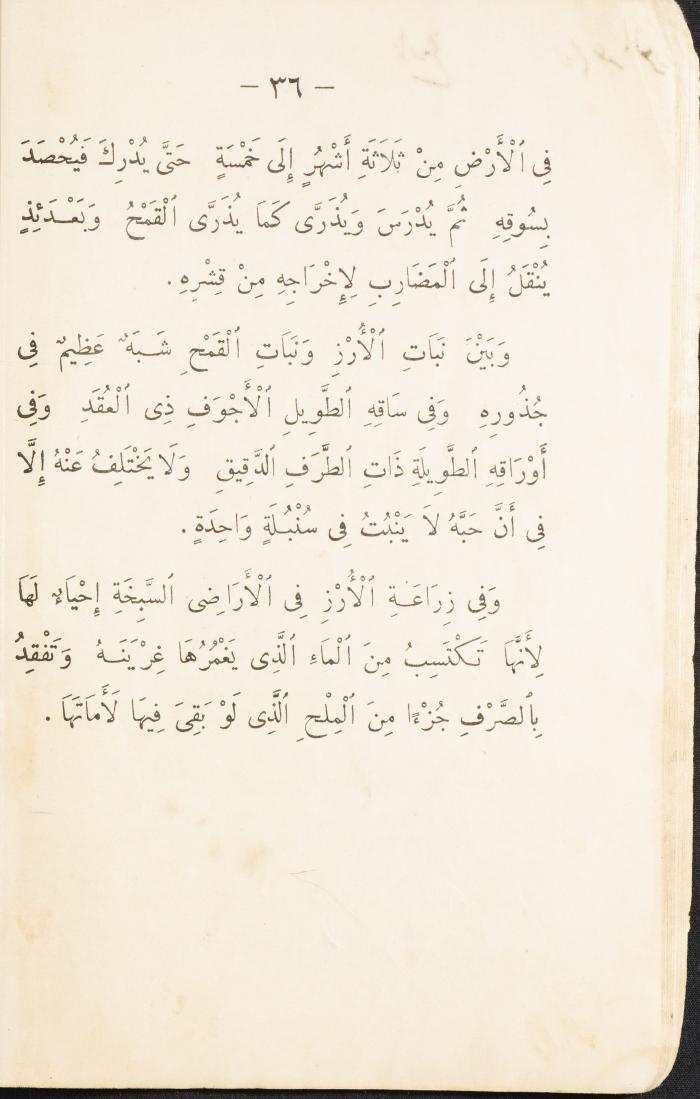 — ٣٦ —
فِي ٱلْأَرْضِ مِنْ ثَلَاثَةِ أَشْهُرٍ إِلَى خَمْسَةٍ حَتَّى يُدْرِكَ فَيُحْصَدَ
بِسُوقِهِ ثُمَّ يُدْرَسَ وَيُذَرَّى كَمَا يُذَرَّى ٱلْقَمْحُ وَبَعْدَئِذٍ
يُنْقَلُ إِلَى ٱلْمَضَارِبِ لِإِخْرَاجِهِ مِنْ قِشْرِهِ .
وَبَيْنَ نَبَاتِ ٱلْأُرْزِ وَنَبَاتِ ٱلْقَمْحِ شَبَهٌ عَظِيمٌ فِي
جُذُورِهِ وَفِي سَاقِهِ ٱلطَّوِيلِ ٱلْأَجْوَفِ ذِى ٱلْعُقَدِ وَفِي
أَوْرَاقِهِ ٱلطَّوِيلَةِ ذَاتِ ٱلطَّرَفِ ٱلدَّقِيقِ وَلَا يَخْتَلِفُ عَنْهُ إِلَّا
فِي أَنَّ حَبَّهُ لَا يَنْبُتُ فِى سُنْبُلَةٍ وَاحِدَةٍ .
وَفِي زِرَاعَةِ ٱلْأُرْزِ فِى ٱلْأَرَاضِى ٱلسَّبِخَةِ إِحْيَاءٌ لَهَا
لِأَنَّهَا تَكْتَسِبُ مِنَ ٱلْمَاءِ ٱلَّذِى يَغْمُرُهَا غِرْيَنَهُ وَتَفْقِدُ
بِٱلصَّرْفِ جُزْءًا مِنَ ٱلْمِلْحِ ٱلَّذِى لَوْ بَقِىَ فِيهَا لَأَمَاتَهَا .